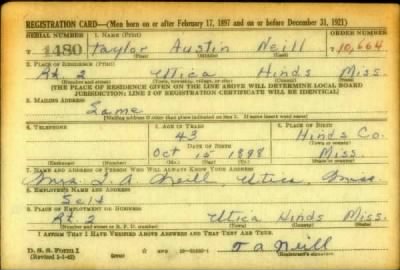 REGISTRATION CARD—(Men born on or after February 17, 1897 and on or before December 31, 1921)
SERIAL NUMBER 1. NAME (Print) ORDER NUMBER
T 1480 Taylor Austin Neill 10,664
(First) (Middle) (Last)
2. PLACE OF RESIDENCE (Print)
Rt 2 Utica Hinds Miss.
(Number and street) (Town, township, village, or city) (County) (State)
[THE PLACE OF RESIDENCE GIVEN ON THE LINE ABOVE WILL DETERMINE LOCAL BOARD
JURISDICTION; LINE 2 OF REGISTRATION CERTIFICATE WILL BE IDENTICAL]
3. MAILING ADDRESS
Same
[Mailing address if other than place indicated on line 2. If same insert word same]
4. TELEPHONE 5. AGE IN YEARS 6. PLACE OF BIRTH
43 Hinds Co.
DATE OF BIRTH (Town or county)
Oct 15 1898 Miss.
(Exchange) (Number) (Mo.) (Day) (Yr.) (State or country)
7. NAME AND ADDRESS OF PERSON WHO WILL ALWAYS KNOW YOUR ADDRESS
Mrs. Neill, Utica Miss
8. EMPLOYER'S NAME AND ADDRESS
Self
9. PLACE OF EMPLOYMENT OR BUSINESS
Rt. 2 Utica Hinds Miss.
(Number and street or R. F. D. number) (Town) (County) (State)
I AFFIRM THAT I HAVE VERIFIED ABOVE ANSWERS AND THAT THEY ARE TRUE.
D. S. S. Form 1
(Revised 1-1-42) T a Neill
(Registrant's signature)